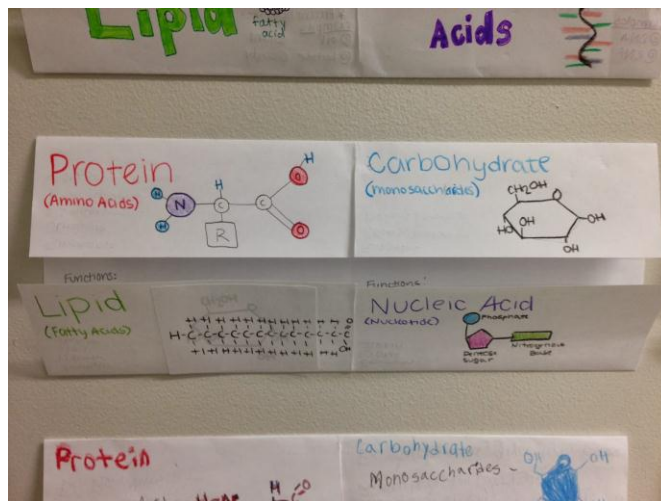 Lipid
fatty
acid
Acids
Protein
(Amino Acids)
H
H
N
H
C
R
C
O
H
O
Carbohydrate
(monosaccharides)
CH2OH
O
HO
OH
OH
OH
Functions:
Functions:
Lipid
(Fatty Acids)
H-C-C-C-C-C-C-C-C-C-C
Nucleic Acid
(Nucleotide)
Phosphate
Pentose
Sugar
Nitrogenous
Base
Protein
H O
Carbohydrate
Monosaccharides -
OH
OH